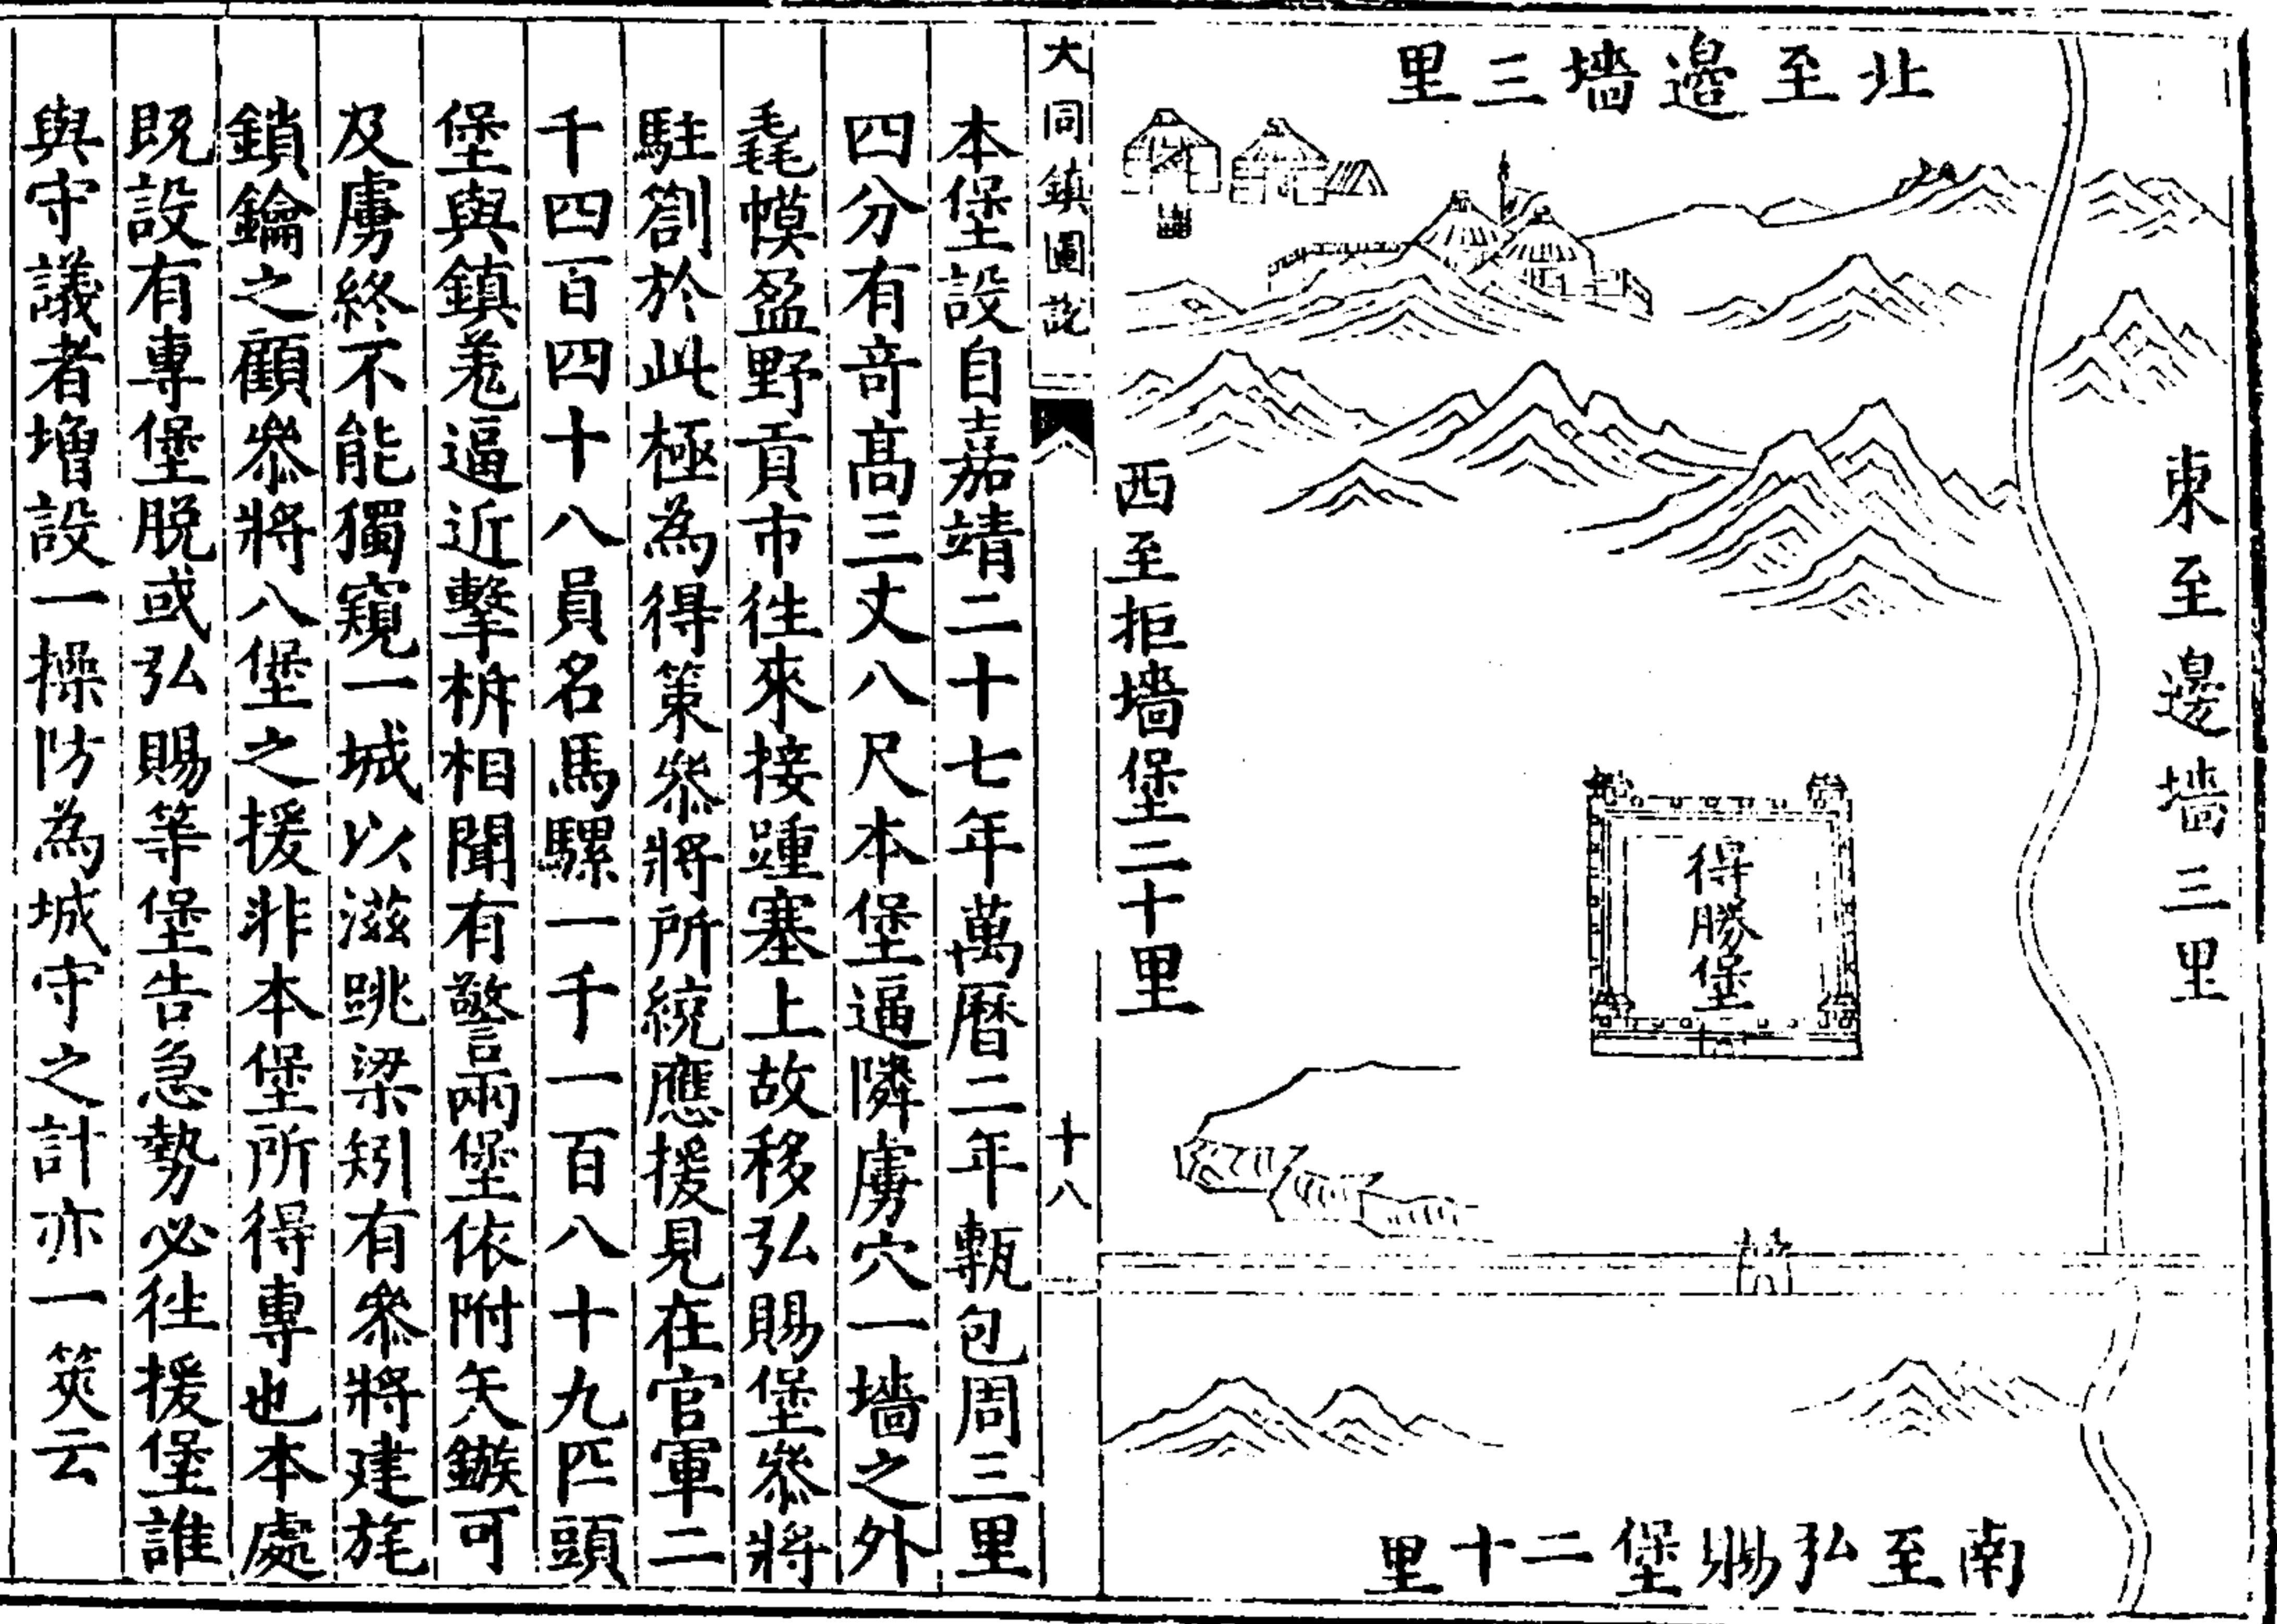 北至邊墻三里
東至邊墻三里
得勝堡
西至拒墻堡二十里
南至弘賜堡二十里
大同鎮圖說
十八
本堡設自嘉靖二十七年萬曆二年甎包周三里
四分有竒髙三丈八尺本堡逼隣虜穴一墻之外
毳幙盈野貢市徃來接踵塞上故移弘賜堡叅將
駐劄於此極為得策叅將所統應援見在官軍二
千四百四十八員名馬騾一千一百八十九匹頭
堡與鎮羌逼近擊柝相聞有警兩堡依附矢鏃可
及虜終不能獨窺一城以滋跳梁矧有叅將建旄
鎖鑰之顧叅將八堡之援非本堡所得專也本處
既設有專堡脱或弘賜等堡告急勢必徃援堡誰
與守議者增設一操防為城守之計亦一筴云